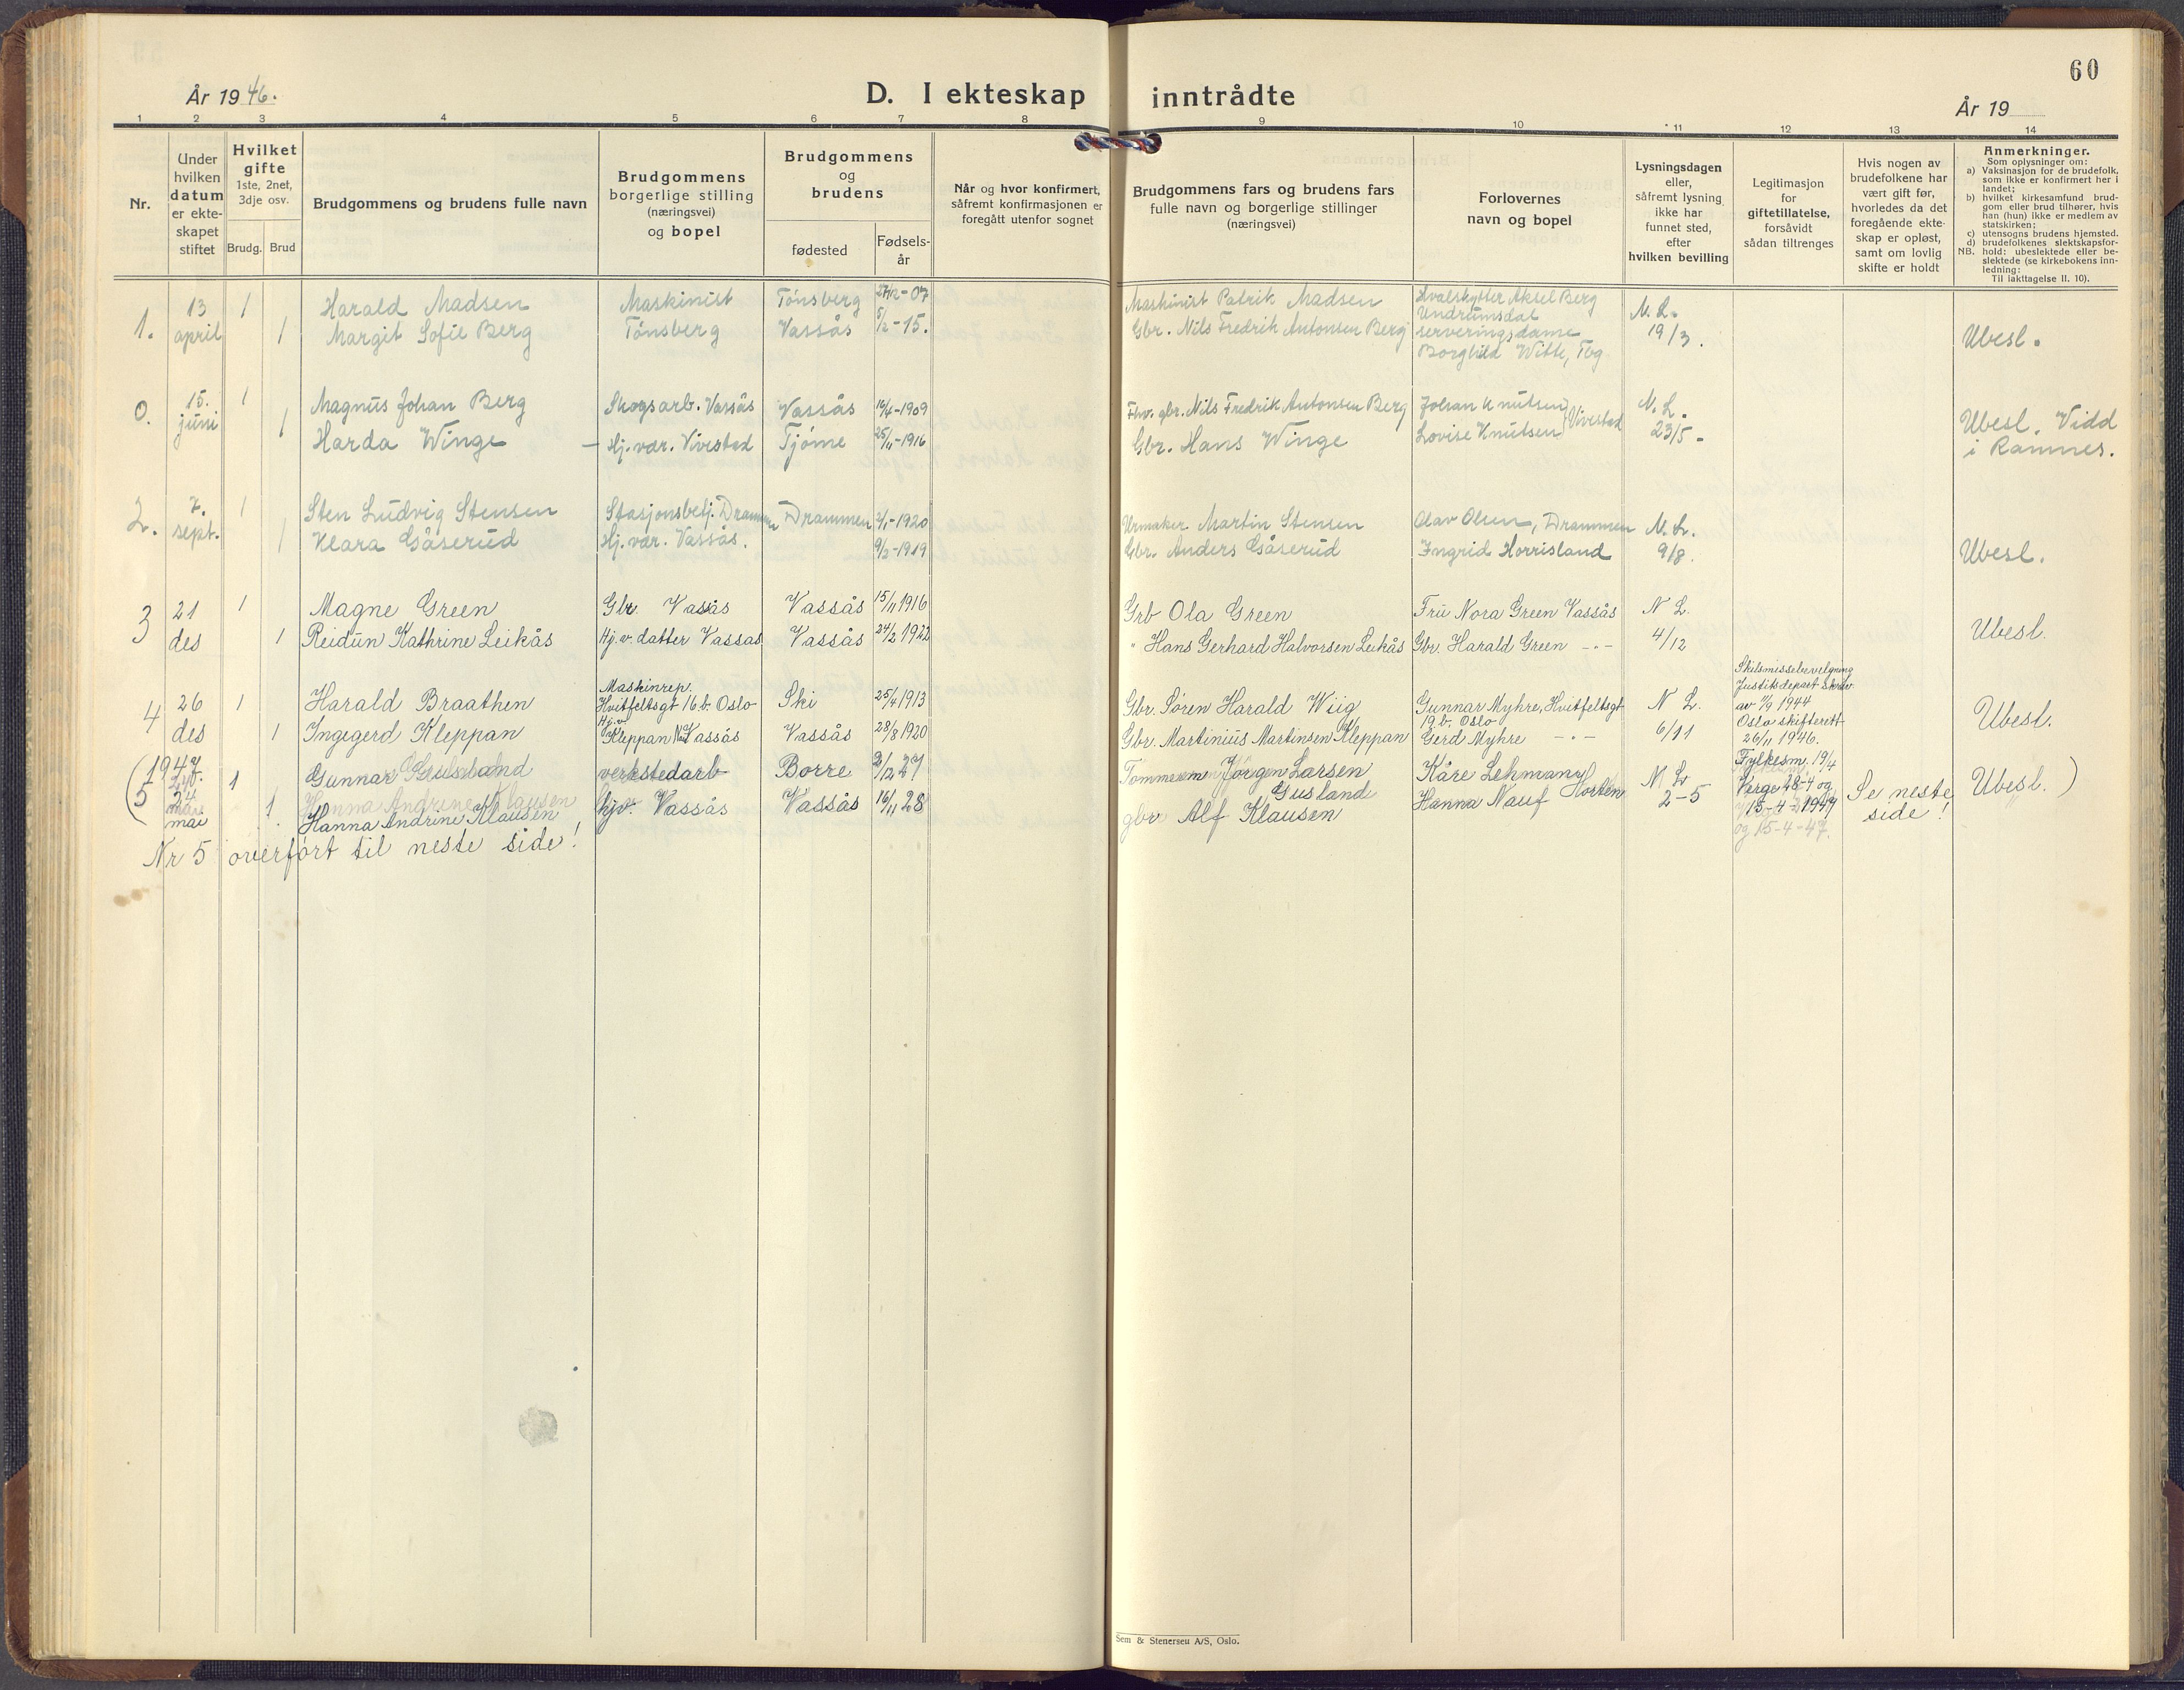 60
År 1946.
D. I ekteskap inntrådte
År 19
1 2 3 4 5 6 7 8 9 10 11 12 13 14
Nr.
Under
hvilken
datum
er ekte-
skapet
stiftet
Hvilket
gifte
1ste, 2net,
3dje osv.
Brudg. Brud
Brudgommens og brudens fulle navn
Brudgommens
borgerlige stilling
(næringsvei)
og bopel
Brudgommens
og
brudens
fødested
Fødsels-
år
Når og hvor konfirmert,
såfremt konfirmasjonen er
foregått utenfor sognet
Brudgommens fars og brudens fars
fulle navn og borgerlige stillinger
(næringsvei)
Forlovernes
navn og bopel
Lysningsdagen
eller,
såfremt lysning
ikke har
funnet sted,
efter
hvilken bevilling
Legitimasjon
for
giftetillatelse,
forsåvidt
sådan tiltrenges
Hvis nogen av
brudefolkene har
vært gift før,
hvorledes da det
foregående ekte-
skap er opløst,
samt om lovlig
skifte er holdt
Anmerkninger.
Som oplysninger om:
a) Vaksinasjon for de brudefolk,
som ikke er konfirmert her i
landet;
b) hvilket kirkesamfund brud-
gom eller brud tilhører, hvis
han (hun) ikke er medlem av
statskirken;
c) utensogns brudens hjemsted.
d) brudefolkenes slektskapsfor-
NB. hold: ubeslektede eller be-
slektede (se kirkebokens inn-
ledning:
Til iakttagelse II. 10).
1.
13
april
1
1
Harald Madsen
Margit Sofie Berg
Maskinist
Tönsberg
Tönsberg
Vassås
27/12-07
5/2-15.
Maskinist Patrik Madsen
Gbr. Nils Fredrik Antonsen Berg
Hvalskytter Aksel Berg
Undrumsdal
serveringsdame
Borghild Witte, Tbg
N. L.
19/3.
Ubesl.
0.
15.
juni
1
1
Magnus Johan Berg
Harda Winge
Skogsarb. Vassås
– Hj. vær. Vivestad
Vassås
Tjöme
16/4-1909
25/11-1916
Fhv. gbr. Nils Fredrik Antonsen Berg
Gbr. Hans Winge
Johan Knutsen
Lovise Knutsen } Vivestad
N. L.
23/5-
Ubesl. Vidd
i Ramnes.
2.
7.
sept.
1
1
Sten Ludvig Stensen
Klara Gåserud
Stasjonsbetj. Drammen
Hj. vær. Vassås.
Drammen
2/1-1920
9/2-1919
Urmaker Martin Stensen
Gbr. Anders Gåserud
Olav Olsen, Drammen
Ingrid Horrisland
N. L.
9/8.
Ubesl.
3
21
des
1
1
Magne Green
Reidun Kathrine Leikås
Gbr. Vassås
Hj. v. datter Vassås
Vassås
Vassås
15/11 1916
24/2 1922
Grb Ola Green
" Hans Gerhard Halvorsen Leikås
Fru Nora Green Vassås
Gbr. Harald Green -"-
N L.
4/12
Ubesl.
4
26
des
1
1
Harald Braathen
Ingegerd Kleppan
Maskinrep.
Hvitfeltsgt 16 b. Oslo
Hj. v.
Kleppan N. Vassås
Ski
Vassås
25/4 1913
28/8 1920
Gbr. Sören Harald Wiig
Gbr. Martinius Martinsen Kleppan
Gunnar Myhre, Hvitfeltsgt
19.b. Oslo
Gerd Myhre -"-
N L.
6/11
Skilsmissebevelgning
Justitsdepart skriv
1944
Oslo skifterett
26/11 1946.
Ubesl.
(1947
5
24
mai
1
1
Gunnar Gusland
Hanna Andrine Klausen
Hanna Andrine Klausen
verkstedarb
hjv. Vassås
Borre
Vassås
2/12 27
16/11 28
Tömmerm Jörgen Larsen
Gusland
gbr Alf Klausen
Kåre Lehmann
Hanna Nauf Horten
N L
2-5
Fylkesm. 19/4
Verge 28-4 og
15-4-1947
og 15-4-47.
Se neste
side!
Ubesl. )
Nr 5 overfört til neste side!
Sem & Stenersen A/S, Oslo.